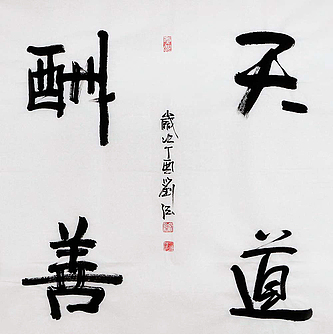 天道
酬善
歲次丁酉劉